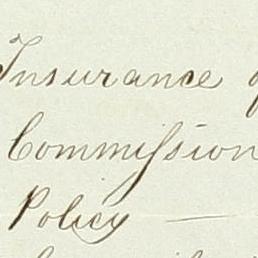 Insurance
Commission
Policy —